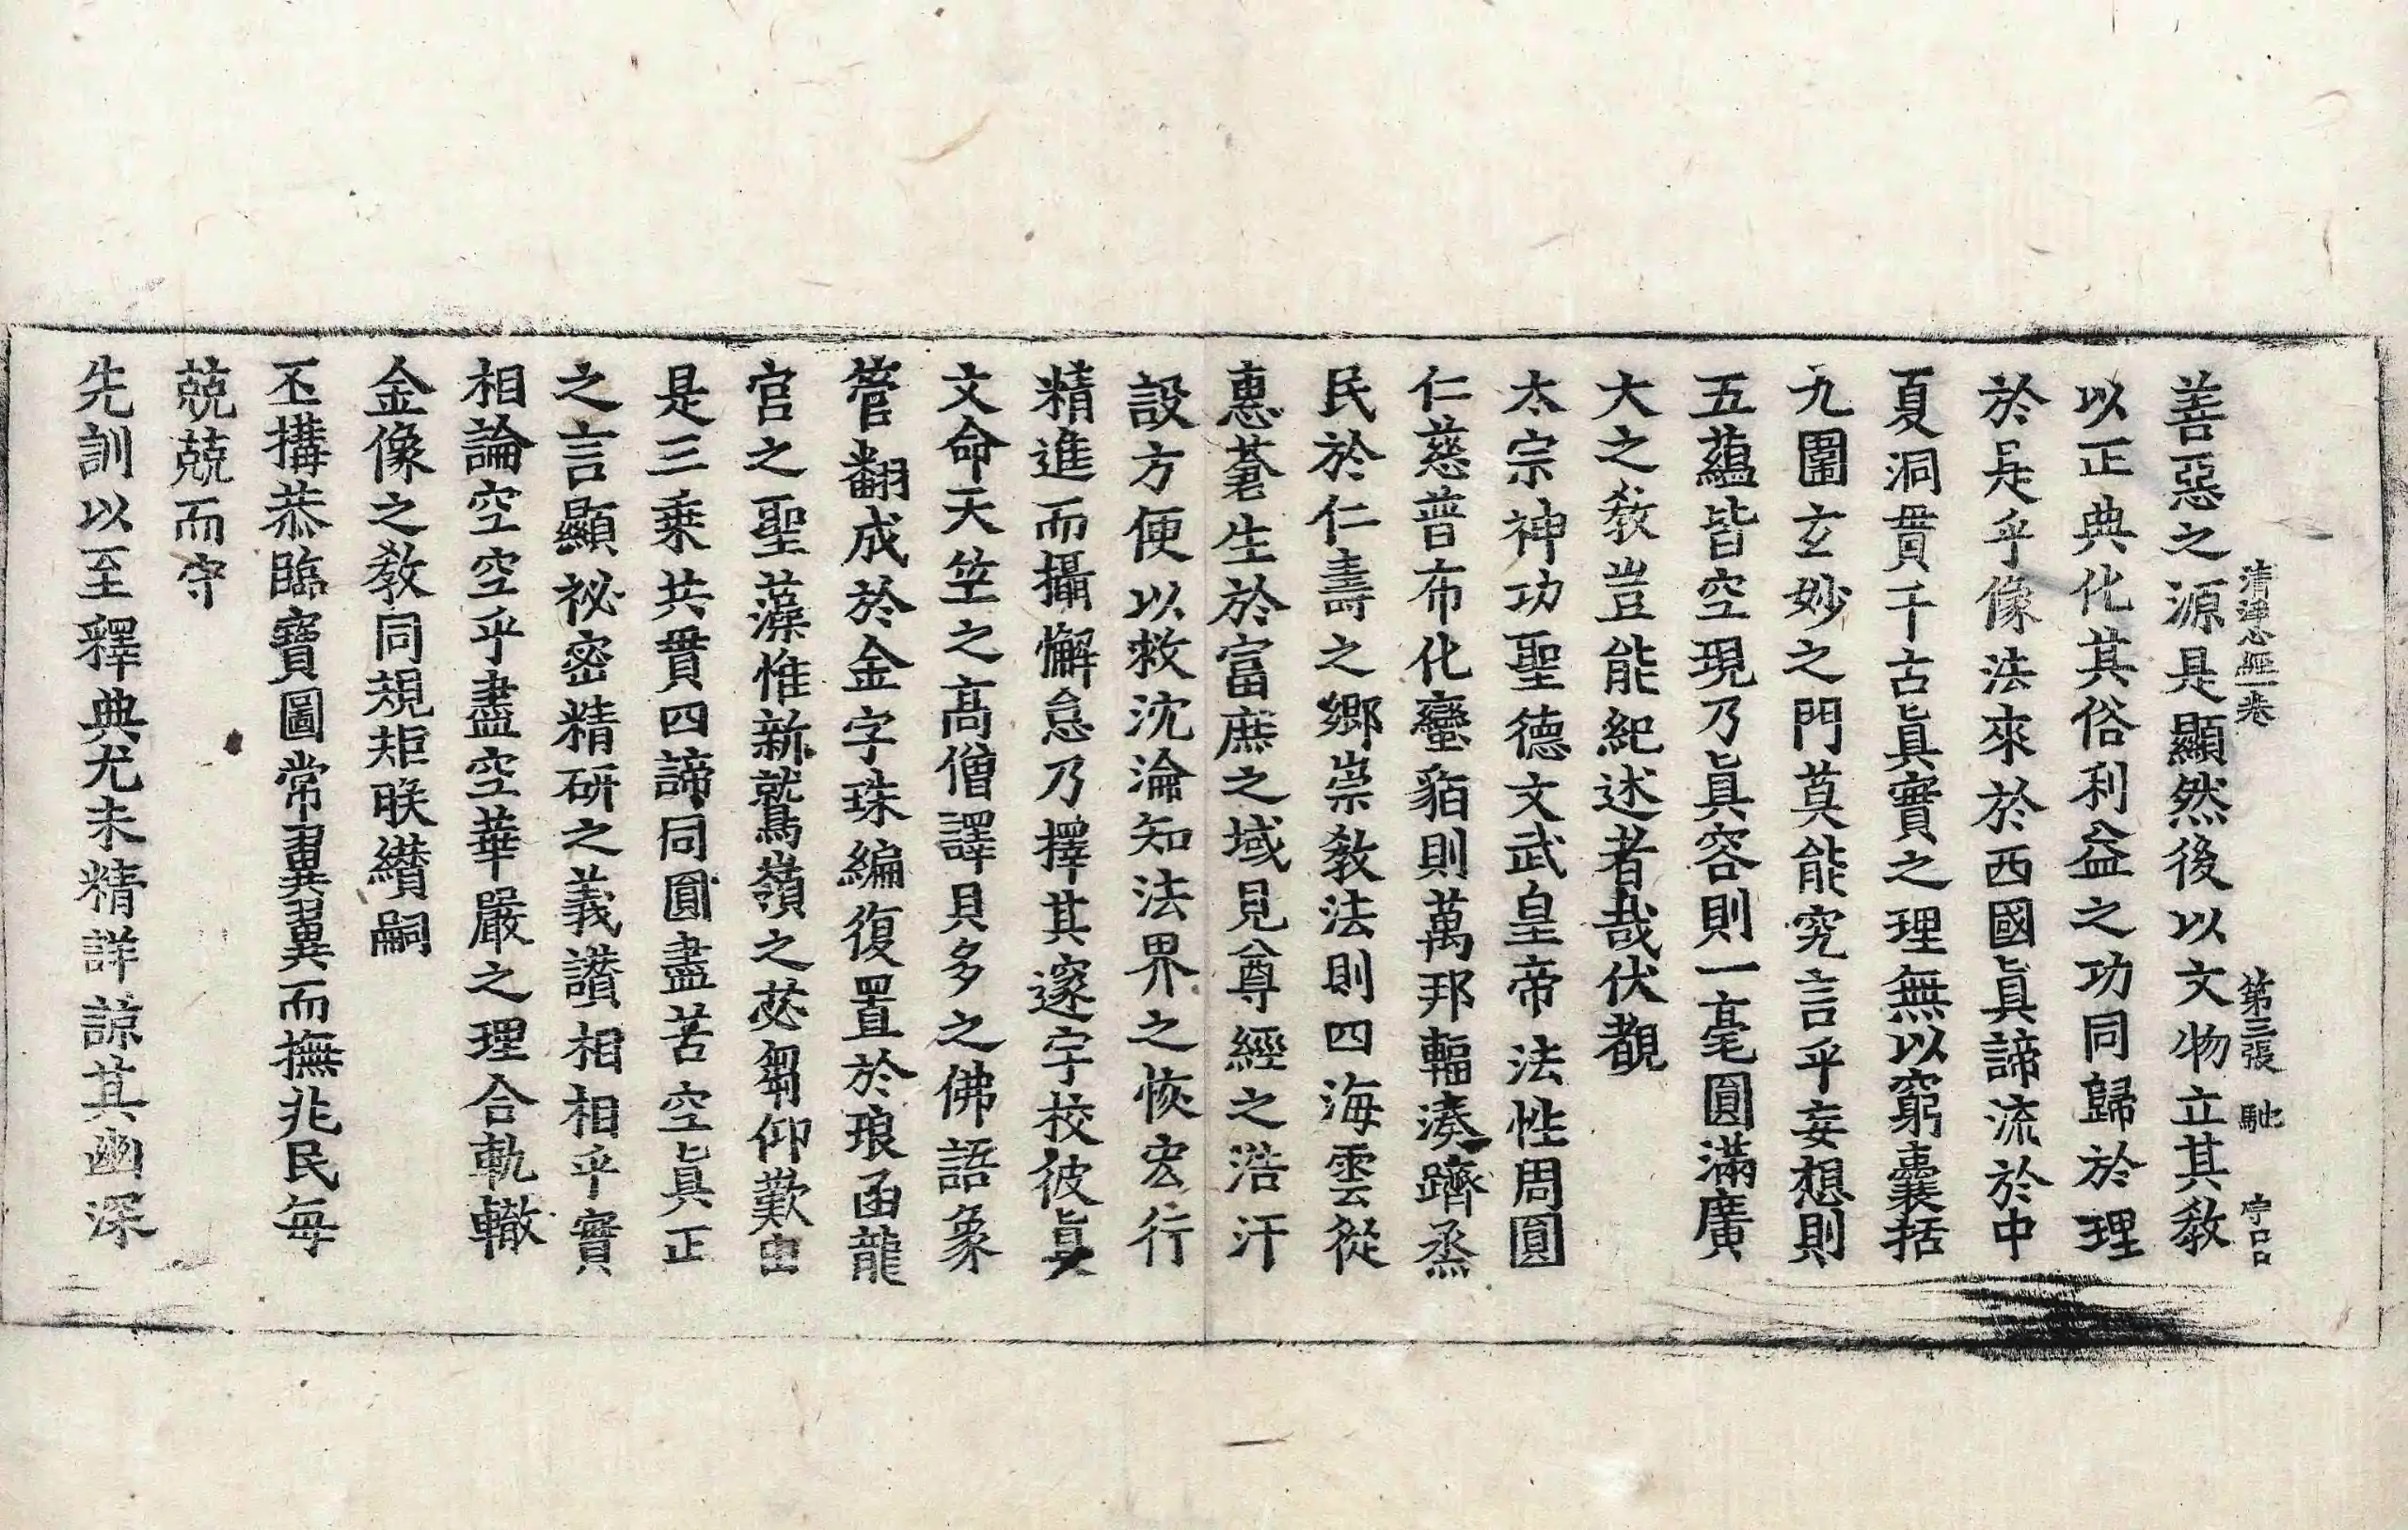 清淨心經一卷 第三張 馳 字
善惡之源是顯然後以文物立其教
以正典化其俗利益之功同歸於理
於是乎像法來於西國眞諦流於中
夏洞貫千古眞實之理無以窮囊括
九圍玄妙之門莫能究言乎妄想則
五蘊皆空現乃眞容則一毫圓滿廣
大之教豈能紀述者哉伏覩
太宗神功聖德文武皇帝法性周圓
仁慈普布化蠻貊則萬邦輻湊躋烝
民於仁壽之鄉崇教法則四海雲從
惠蒼生於富庶之域見尊經之浩汗
設方便以救沈淪知法界之恢宏行
精進而攝懈怠乃擇其邃宇校彼眞
文命天竺之高僧譯貝多之佛語象
管翻成於金字珠編復置於琅函龍
宮之聖藻惟新鷲嶺之苾蒭仰歎由
是三乘共貫四諦同圓盡苦空眞正
之言顯祕密精研之義讚相相乎實
相論空空乎盡空華嚴之理合軌轍
金像之教同規矩朕纘嗣
丕搆恭臨寶圖常翼翼而撫兆民每
兢兢而守
先訓以至釋典尤未精詳諒其幽深